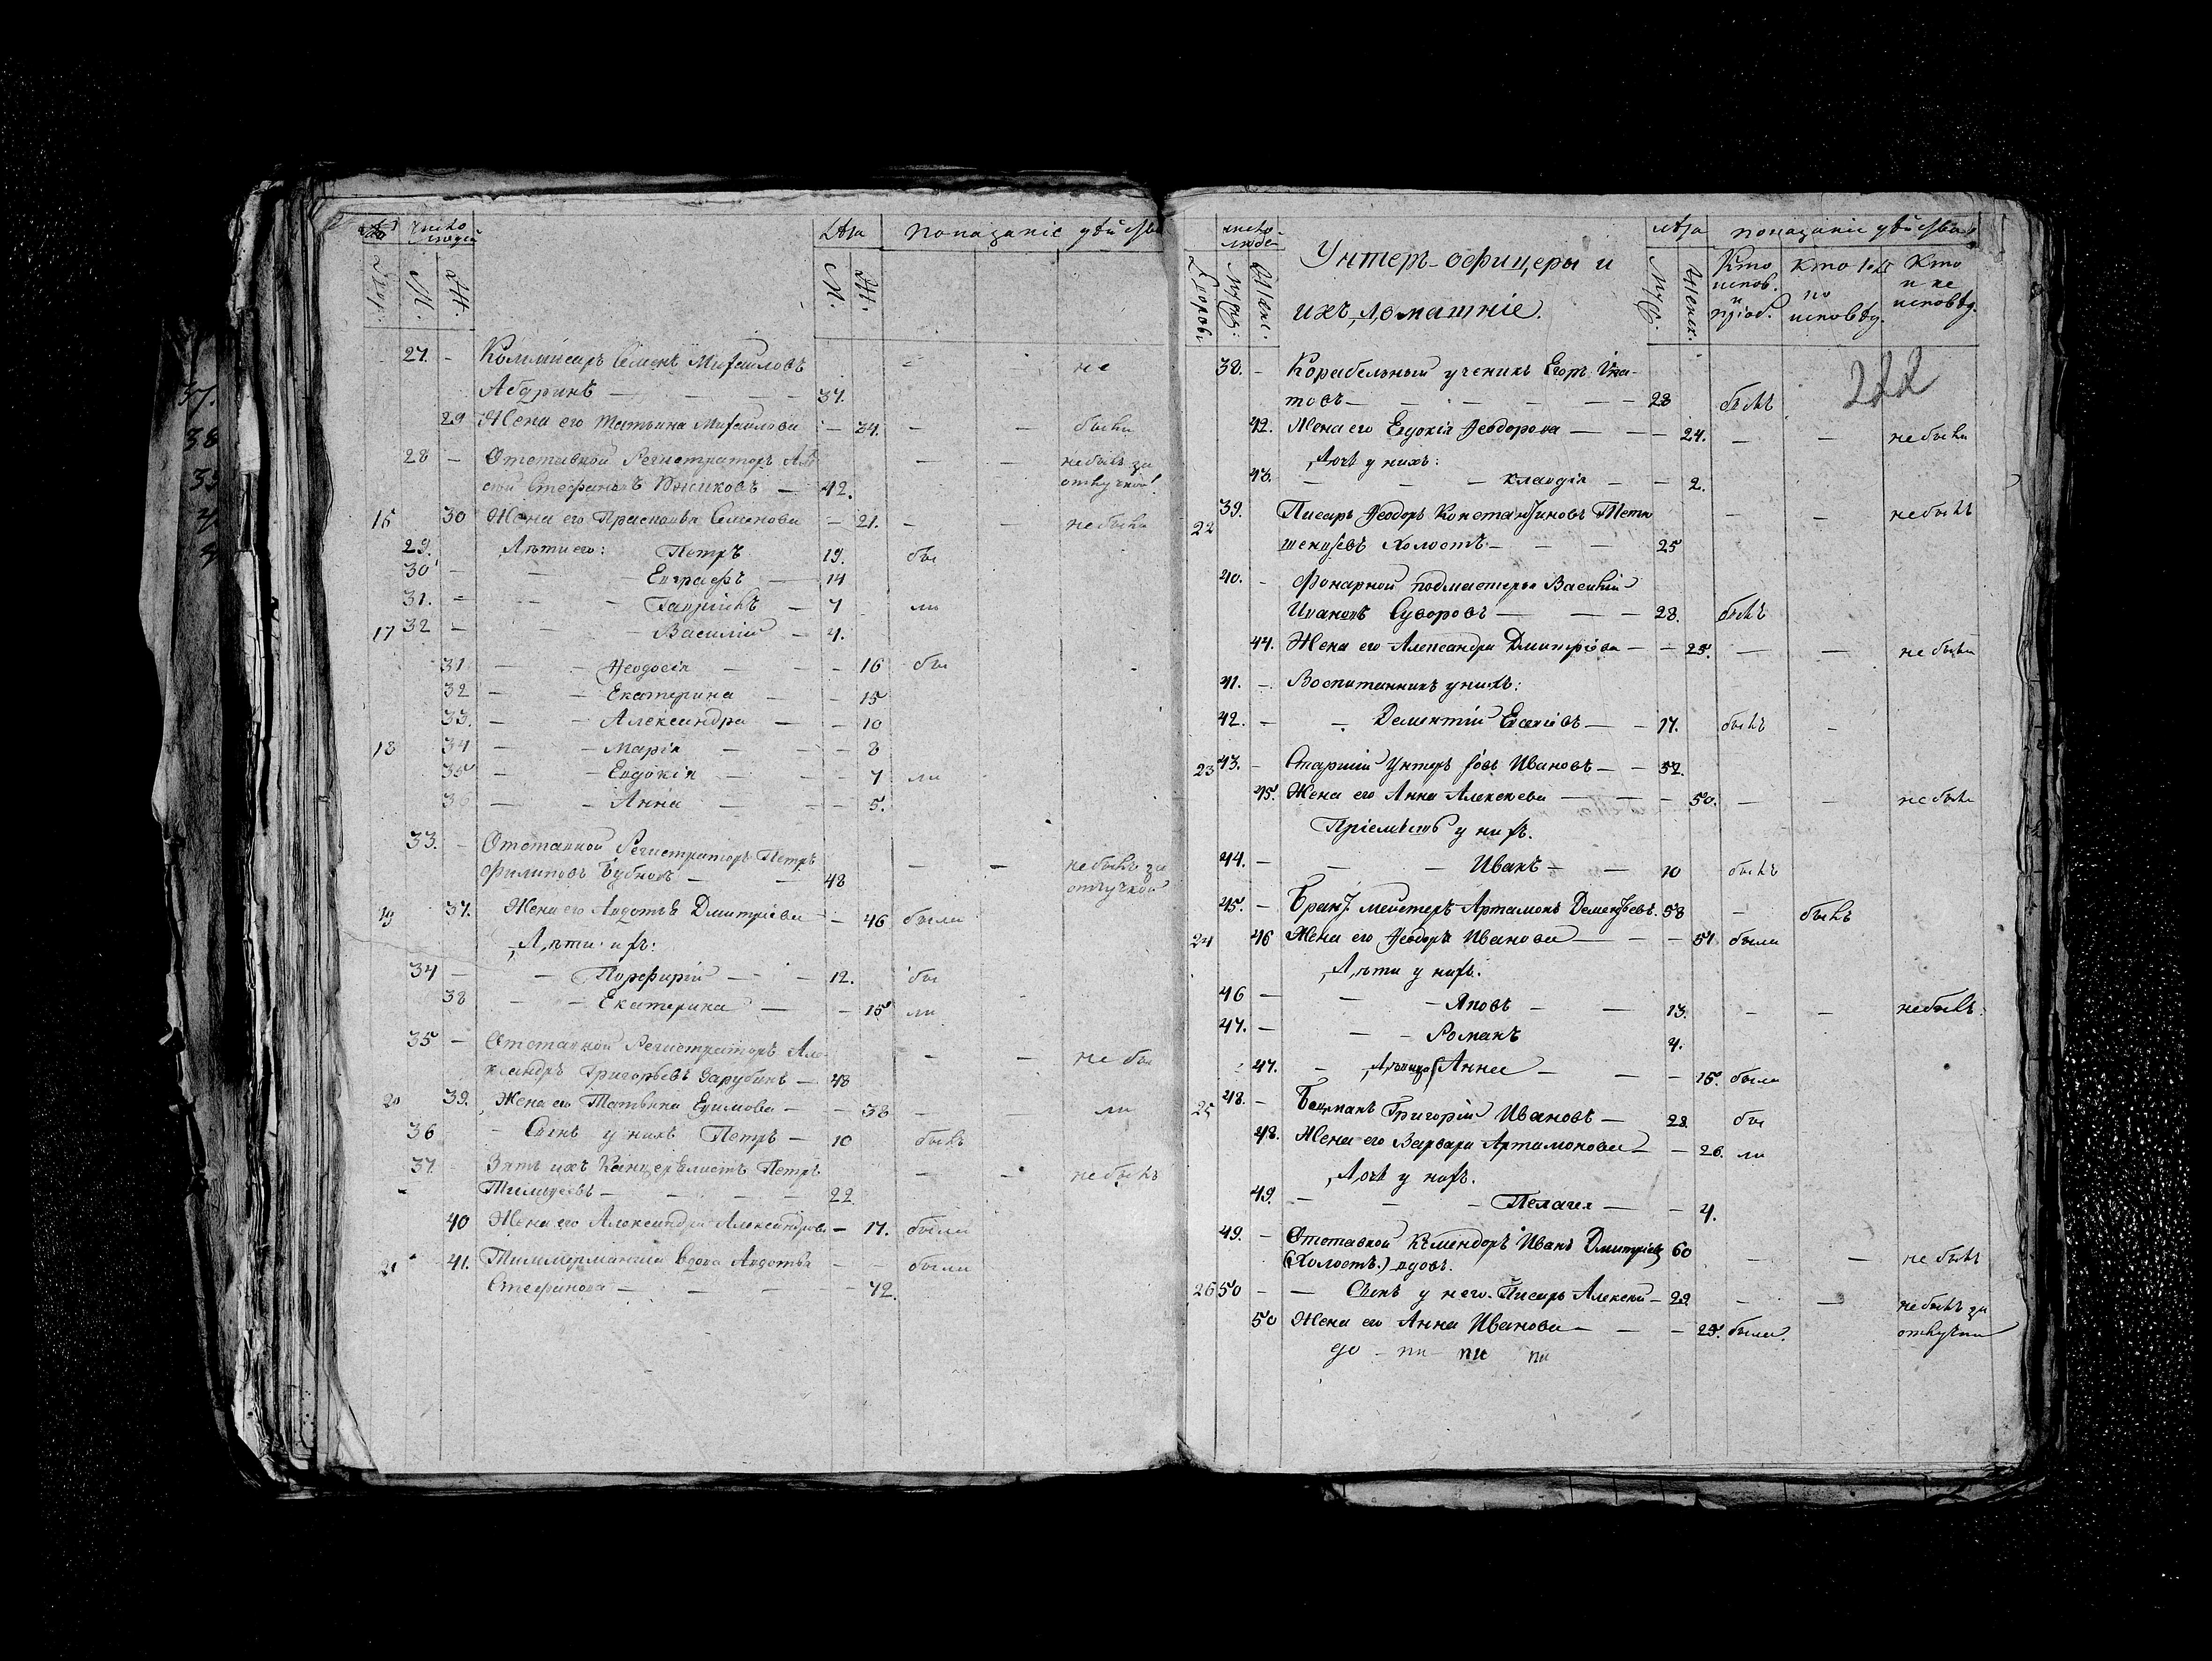 число людей
Лѣта показаніе дѣйства
М. Ж. М. Ж.
27. – Коммисаръ Семенъ Михайловъ – – не
– – – 37.
29 Жена его Татьяна Михайлова – 34. – – были
28 – Отставной Регистраторъ – – небылъ за
42. отлучкой
16 30 Жена его Прасковья Семенова – 21. – – небыла
29. Дѣти его: Петръ 19. бы
30 – – Евграфъ – 14
31. – – Гавріилъ – 7 ли
17 32 – – Василій – 4.
31 – – Ѳеодосія – – 16 бы
32 – – Екатерина – – 15
33. – – Александра – – 10
18 34 – – Марія – – 8
35 – – Евдокія – – 7 ли
36 – – Анна – – 5.
33. – Отставной Регистраторъ Петръ – – небылъ за
Филиповъ Бубновъ – – 48 отлучкой
19 37. Жена его Авдотья Дмитріева – 46 были
Дѣти ихъ:
34 – – Порфирій – – 12. бы
38 – – Екатерина – – 15 ли
35 – Отставной Регистраторъ Але- – – не бы
ксандръ Григорьевъ Зарубинъ – 48
20 39. Жена его Татьяна Ефимова – – 38 – – ли
36 – Сынъ у нихъ Петръ – 10 былъ
37. Зять ихъ Канцеляристъ Петръ – – небылъ
– – – 22
40 Жена его Александра Александрова – 17. были
21 41. Тиммерманская вдова Авдотья – – были
Стефанова – – – 42.
число людей
Унтеръ-офицеры и
ихъ домашніе.
лѣта показаніе дѣйства
Дворовъ Муж: Женс. Муж. Женск.
Кто испов. и пріоб.
Кто
по исповѣд.
Кто и не исповѣд.
222
38. – Корабельный ученикъ Егоръ Игна-
товъ – – – – – 28 былъ
42. Жена его Евдокія Ѳеодорова – – 24. – – небыла
Дочь у нихъ:
43. – – Клавдія – – 2.
22 39. Писарь Ѳеодоръ Константиновъ – – небылъ
Холостъ – – – 25
40. – Фонарной подмастерья Василій
Ивановъ Суворовъ – – – 28. былъ
44. Жена его Александра Дмитріева – – 25. – – не была
41. – Воспитанникъ у нихъ:
42. – – Дементій – – 17. былъ –
23 43. – Старшій Унтеръ Ивановъ – – 52.
45. Жена его Анна Алексеева – – – 50. – – небыла
Пріемышъ у нихъ.
44. – – – Иванъ – – 10 былъ
45. – Брантмейстеръ Артамонъ Дементьевъ. 58 – былъ
24 46 Жена его Ѳеодора Иванова – – – 51 была
Дѣти у нихъ.
46 – – – Яковъ – – 13. – – небылъ.
47. – – – Романъ 4.
47. – Дѣвица Анна – – – 15. была
25 48. – Боцманъ Григорій Ивановъ – 28. бы
48. Жена его Варвара Артамонова – – 26. ли
Дочь у нихъ.
49. – – – Пелагея – – 4.
49. – Отставной Камендоръ Иванъ Дмитріевъ 60 – – не былъ
(Холостъ.) вдовъ.
26 50 – – Сынъ у него. Писарь Алексей – 29. – – небылъ за
50 Жена его Анна Иванова – – – 25. была. отлучки